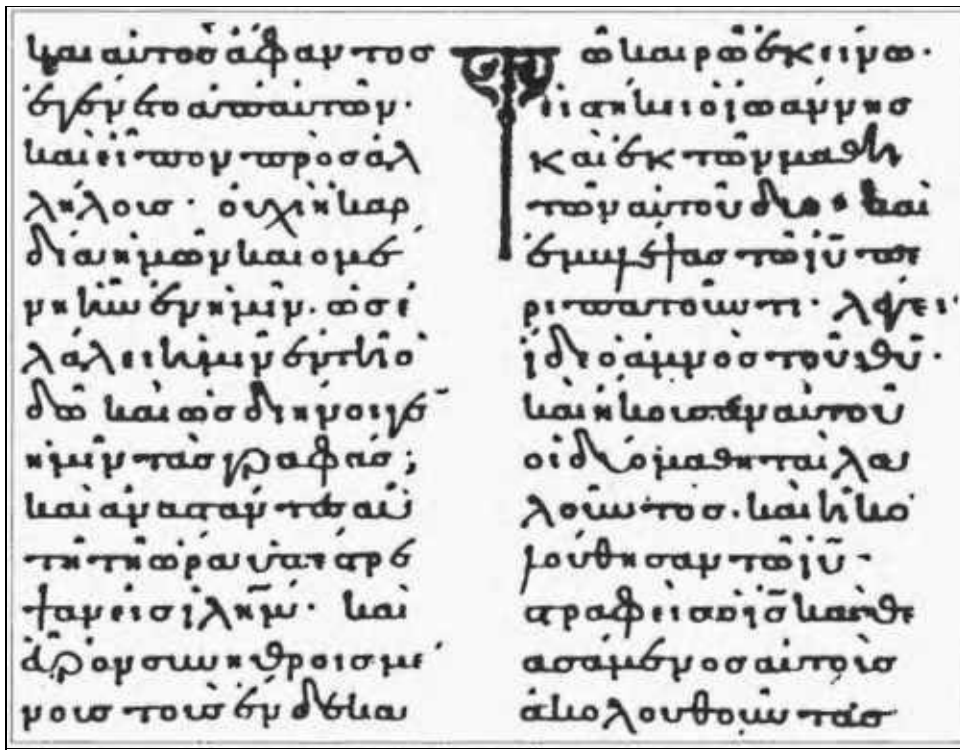 και αὐτοσ ἀφαντοσ
ἐγένετο ἀπ αὐτῶν·
καὶ εἶπον πρὸσ ἀλ
λήλοισ· οὐχὶ ἡ καρ
δία ἡμῶν καιομέ
νη ἦν ἐν ἡμῖν· ὡσ ἐ
λάλει ἡμῖν ἐν τῆ ὁ
δῶ καὶ ὡσ διήνοιγε
ἡμῖν τὰσ γραφάσ;
καὶ ἀναστάντεσ αὐ
τῆ τῆ ὥρα ὑπέστρε
ψαν εἰσ ιλημ̅· καὶ
εὗρον συνηθροισμέ
νουσ τοὺσ ἕνδεκα
Τῶ καιρῶ ἐκείνω·
εἱστήκει ὁ ἰωάννησ
καὶ ἐκ τῶν μαθη
τῶν αὐτοῦ δύο· καὶ
ἐμβλέψασ τῶ ιυ̅ πε
ριπατοῦντι· λέγει·
ἴδε ὁ ἀμνὸσ τοῦ θυ̅·
καὶ ἤκουσαν αὐτοῦ
οἱ δύο μαθηταὶ λα
λοῦντοσ· καὶ ἠκο
λούθησαν τῶ ιυ̅·
στραφεὶσ ὁ ισ̅ καὶ θε
ασάμενοσ αὐτοὺσ
ἀκολουθοῦντασ